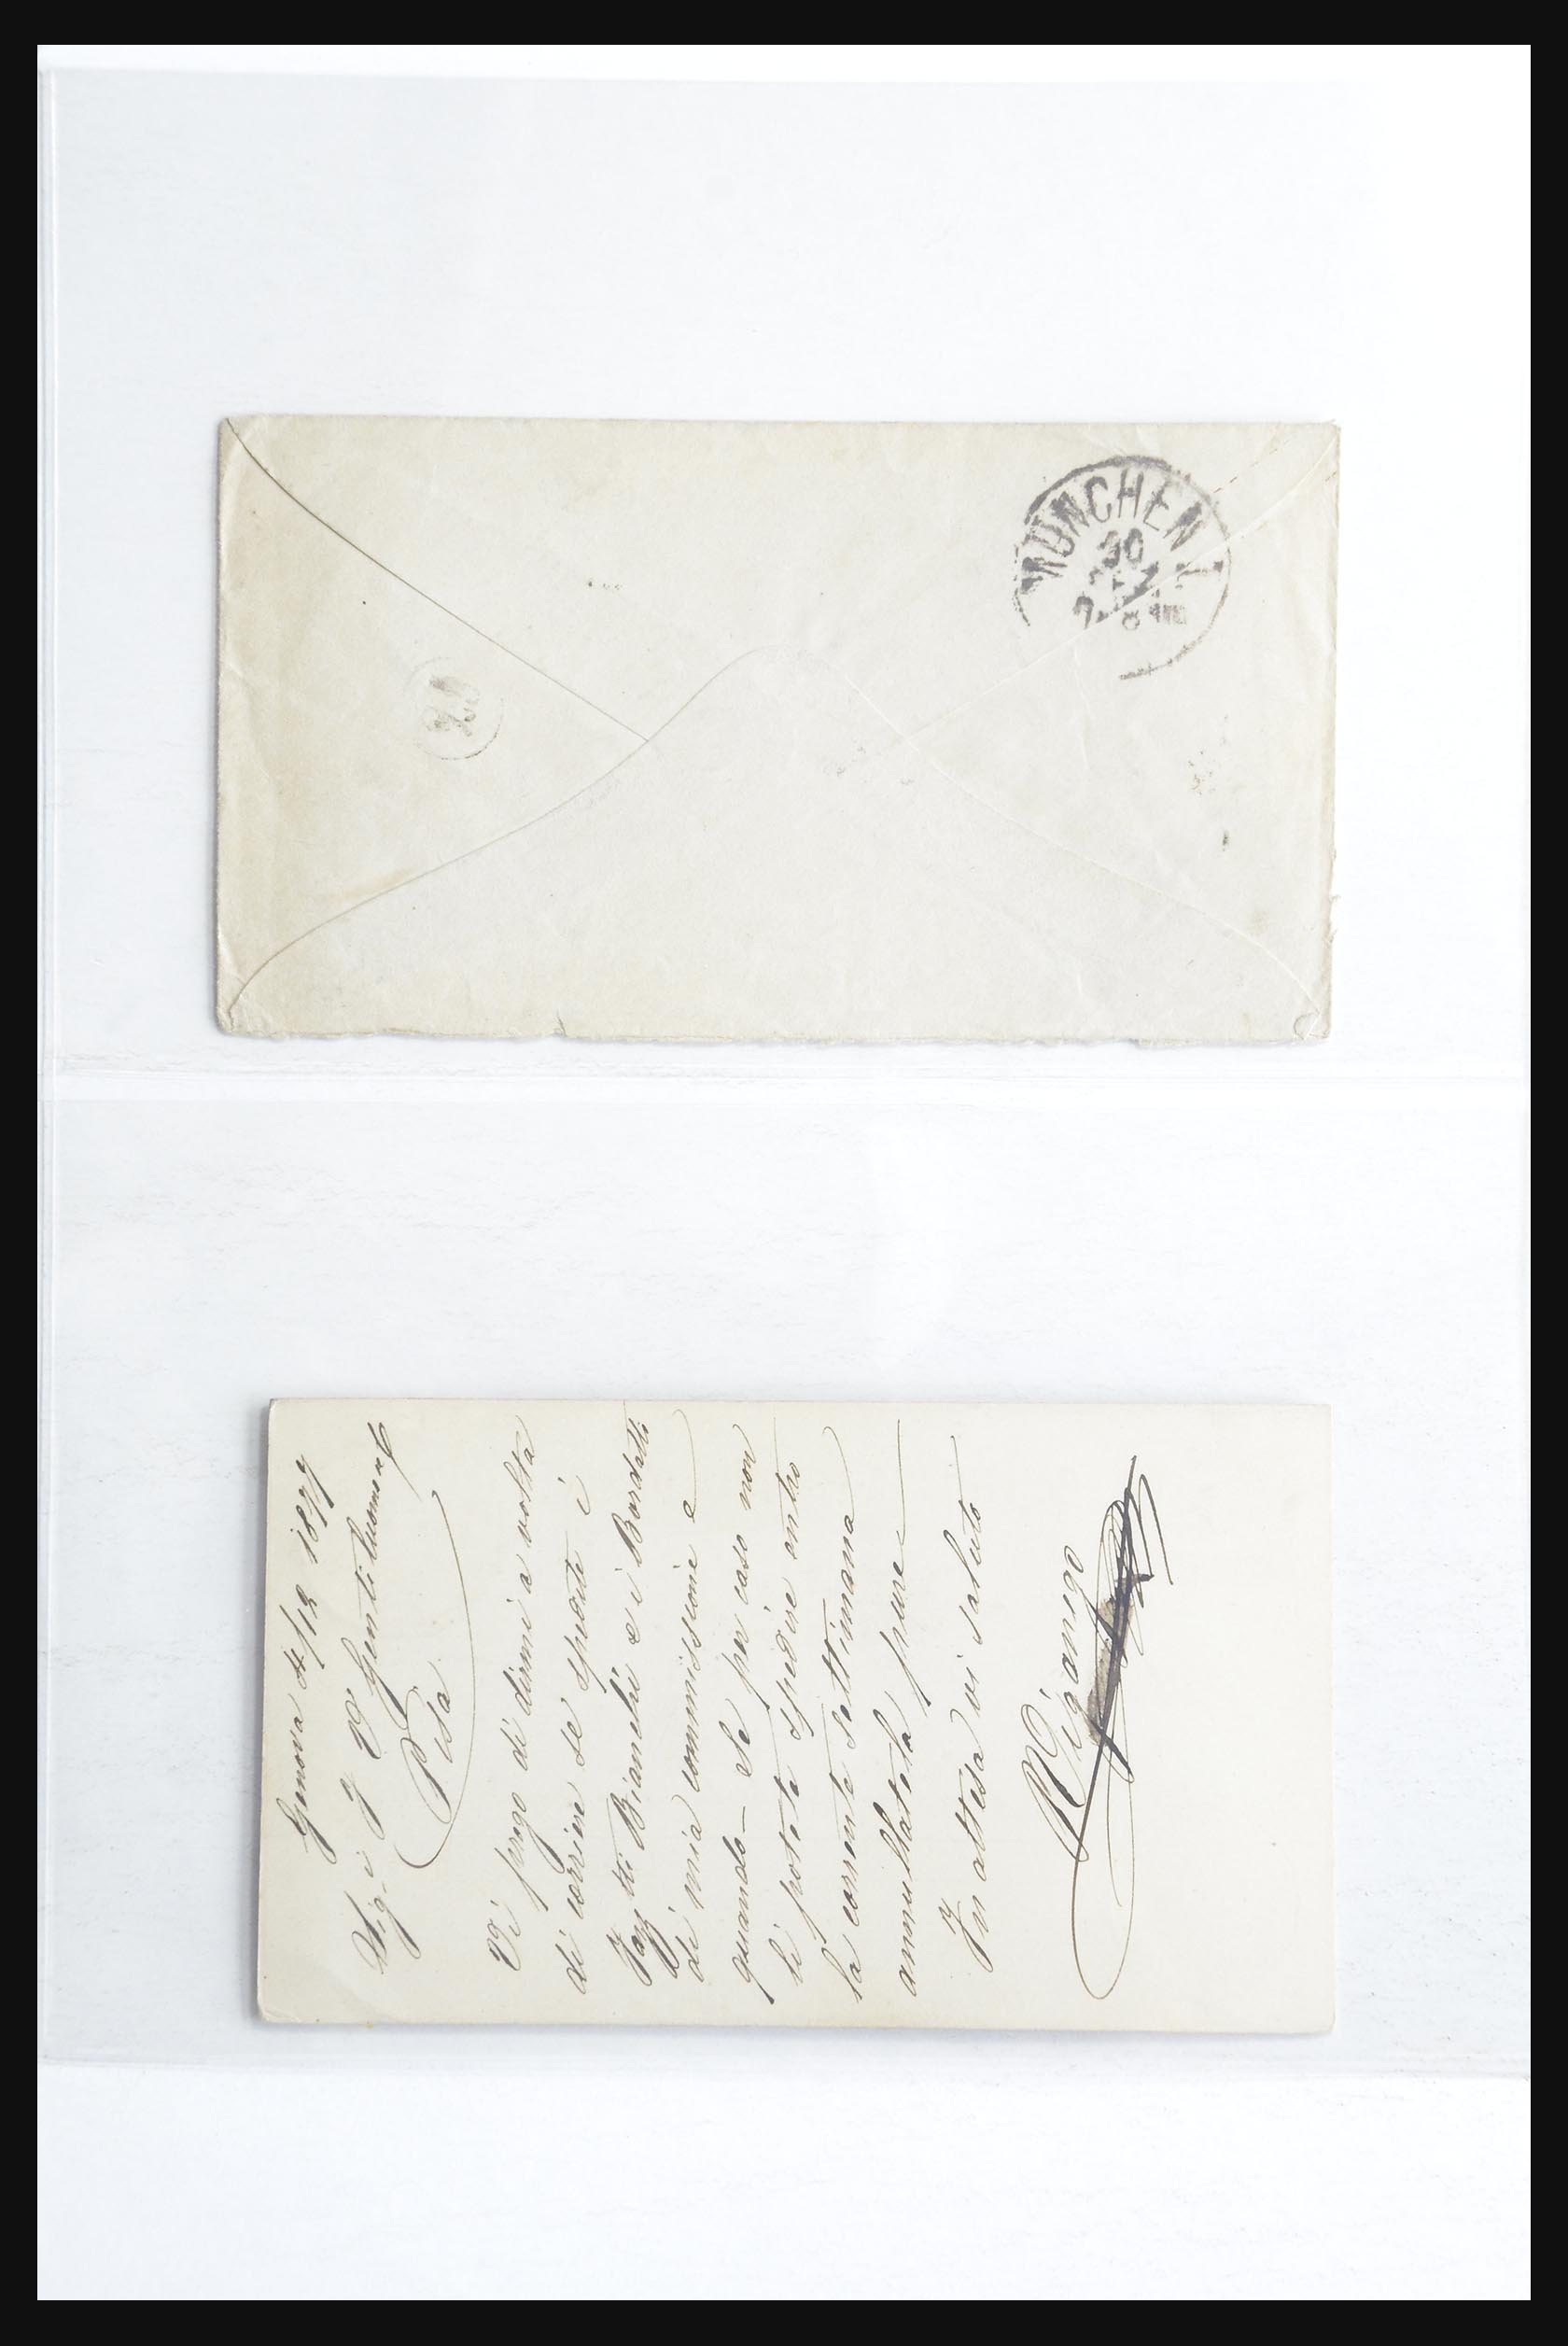 MÜNCHEN I
Genova 4/12 1877
Sig.i J V Gentiluomo e C
Pisa
Vi prego di dirmi a volta
di corriere se spedite i
Bianchi e i Bordati
di mia commissione e
quando – Se per caso non
li potete spedire entro
la corrente settimana
annullatela pure
In attesa vi saluto